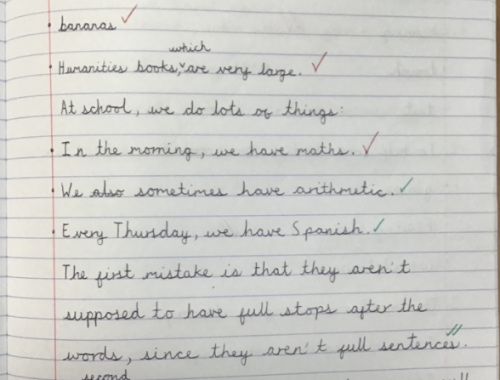 • bananas
which
• Humanities books, are very large.
At school, we do lots of things:
• In the morning, we have maths.
• We also sometimes have arithmetic.
• Every Thursday, we have Spanish.
The first mistake is that they aren't
supposed to have full stops after the
words, since they aren't full sentences.
second